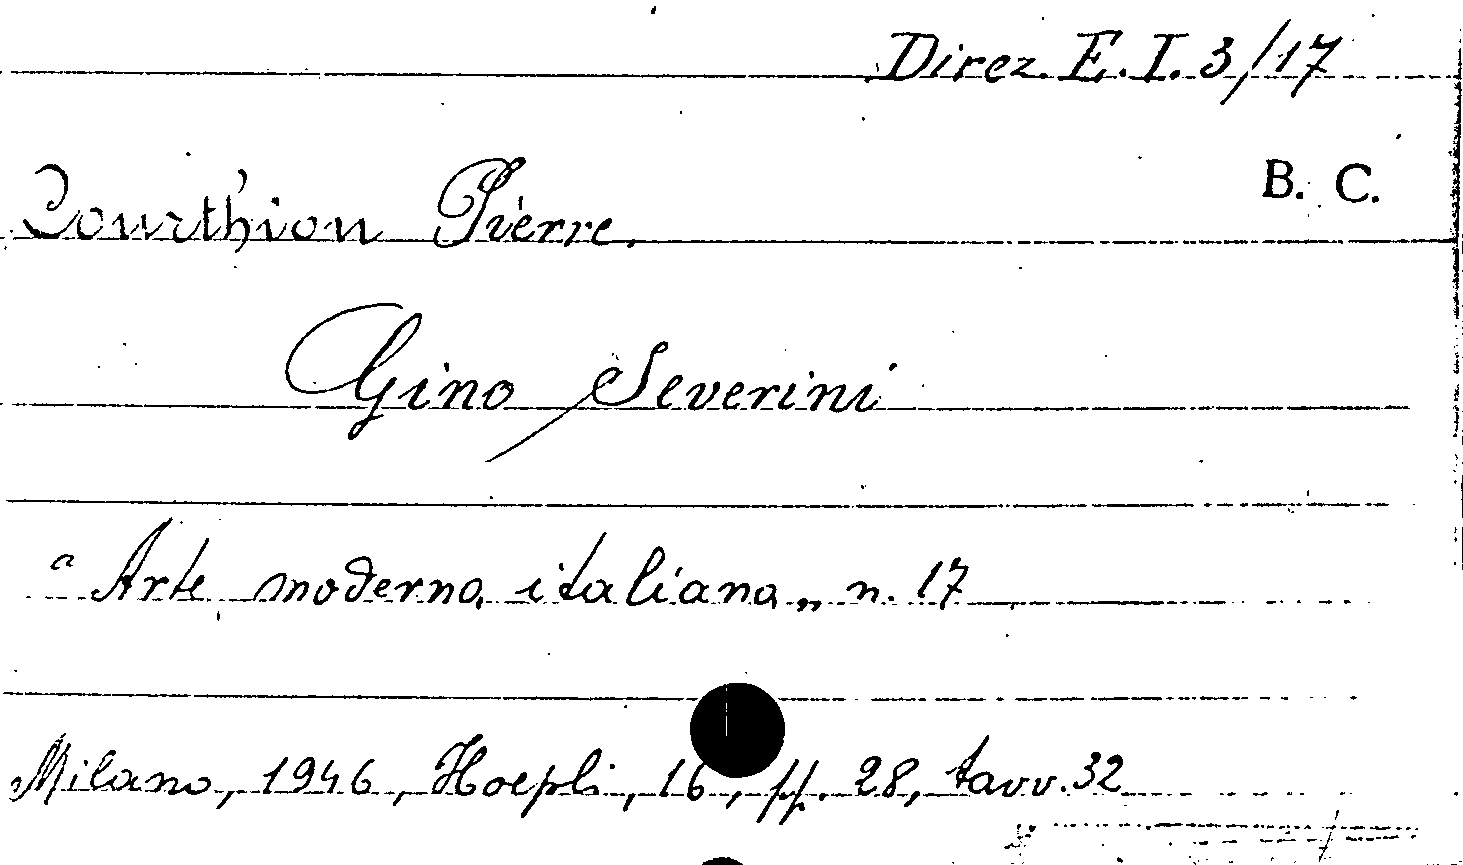 Direz. E. I. 3/17
B. C.
Courthion Pierre.
Gino Severini
“Arte moderna italiana„ n. 17
Milano, 1946, Hoepli, 16, pp. 28, tavv. 32